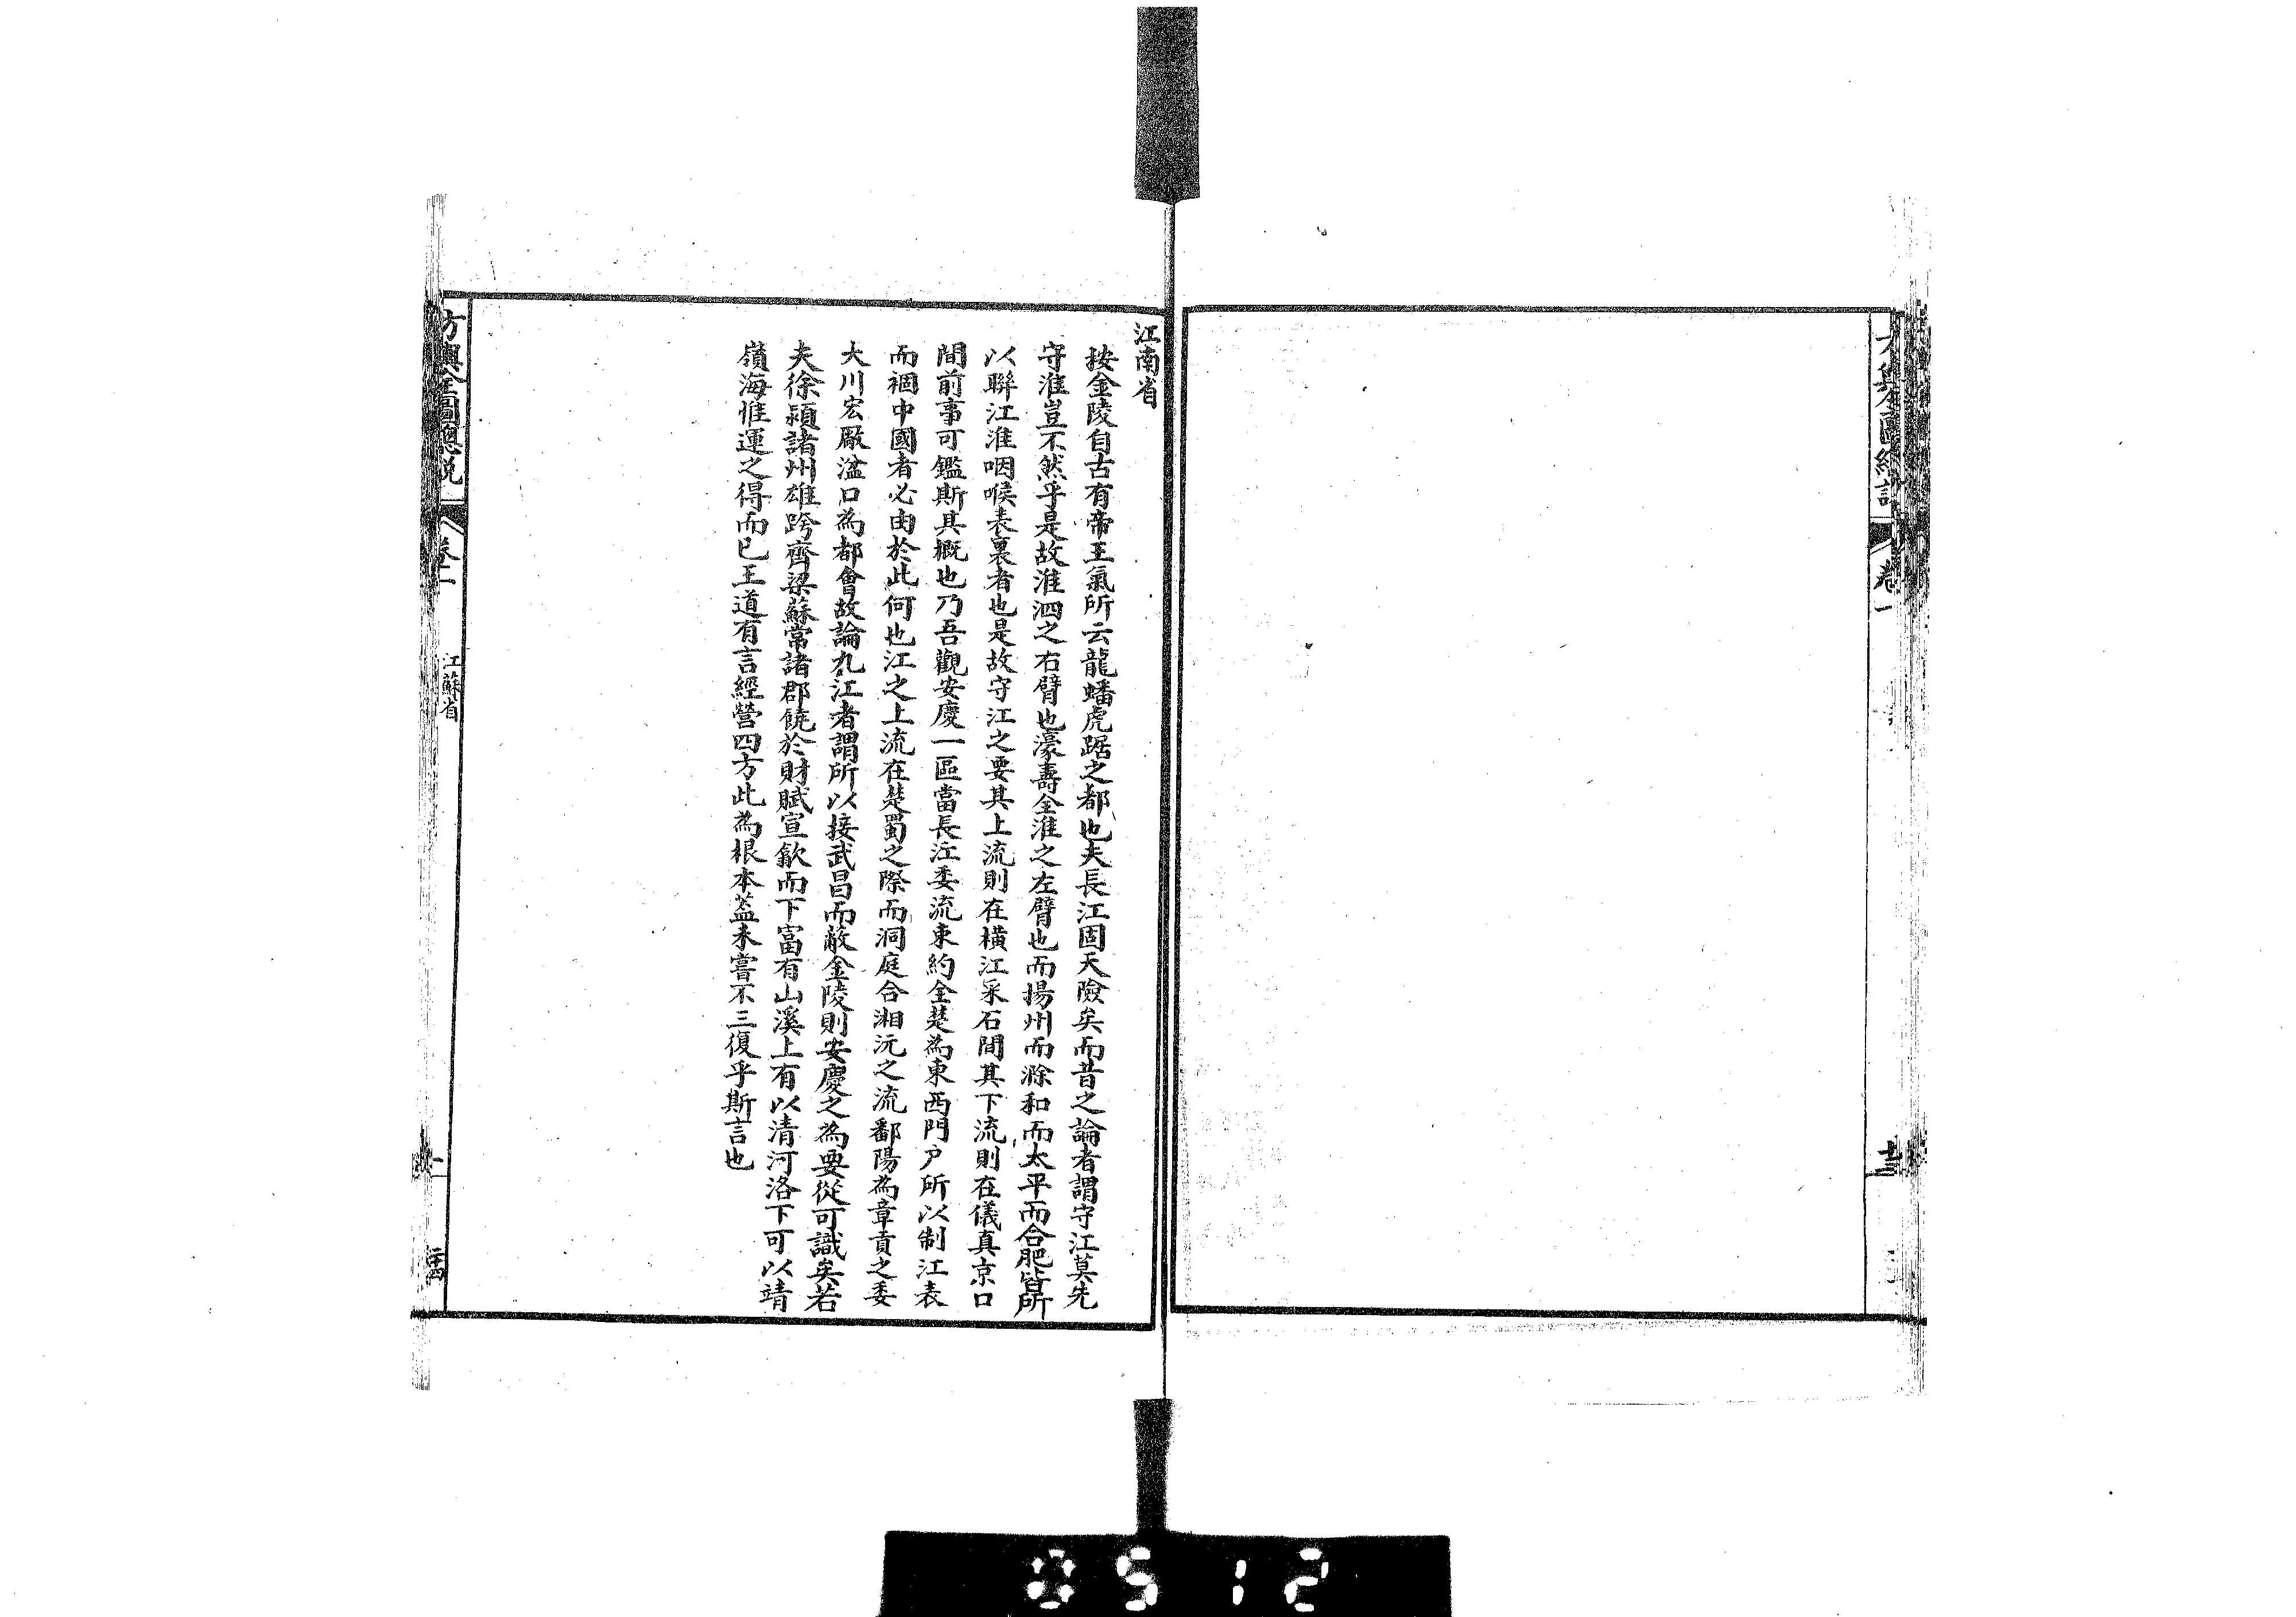 江南省
按金陵自古有帝王氣所云龍蟠虎踞之都也夫長江固天險矣而昔之論者謂守江莫先
守淮豈不然乎是故淮泗之右臂也濠壽全淮之左臂也而揚州而滁和而太平而合肥皆所
以聯江淮咽喉表裏者也是故守江之要其上流則在橫江采石間其下流則在儀真京口
間前事可鑑斯其概也乃吾觀安慶一區當長江委流東約全楚為東西門户所以制江表
而裀中國者必由於此何也江之上流在楚蜀之際而洞庭合湘沅之流鄱陽為章貢之委
大川宏厰湓口為都會故論九江者謂所以接武昌而蔽金陵則安慶之為要從可識矣若
夫徐潁諸州雄跨齊梁蘇常諸郡饒於財賦宣歙而下富有山溪上有以清河洛下可以靖
嶺海惟運之得而已王道有言經營四方此為根本蓋未嘗不三復乎斯言也
方輿全圖總說
卷一
江蘇省
卷一
0512